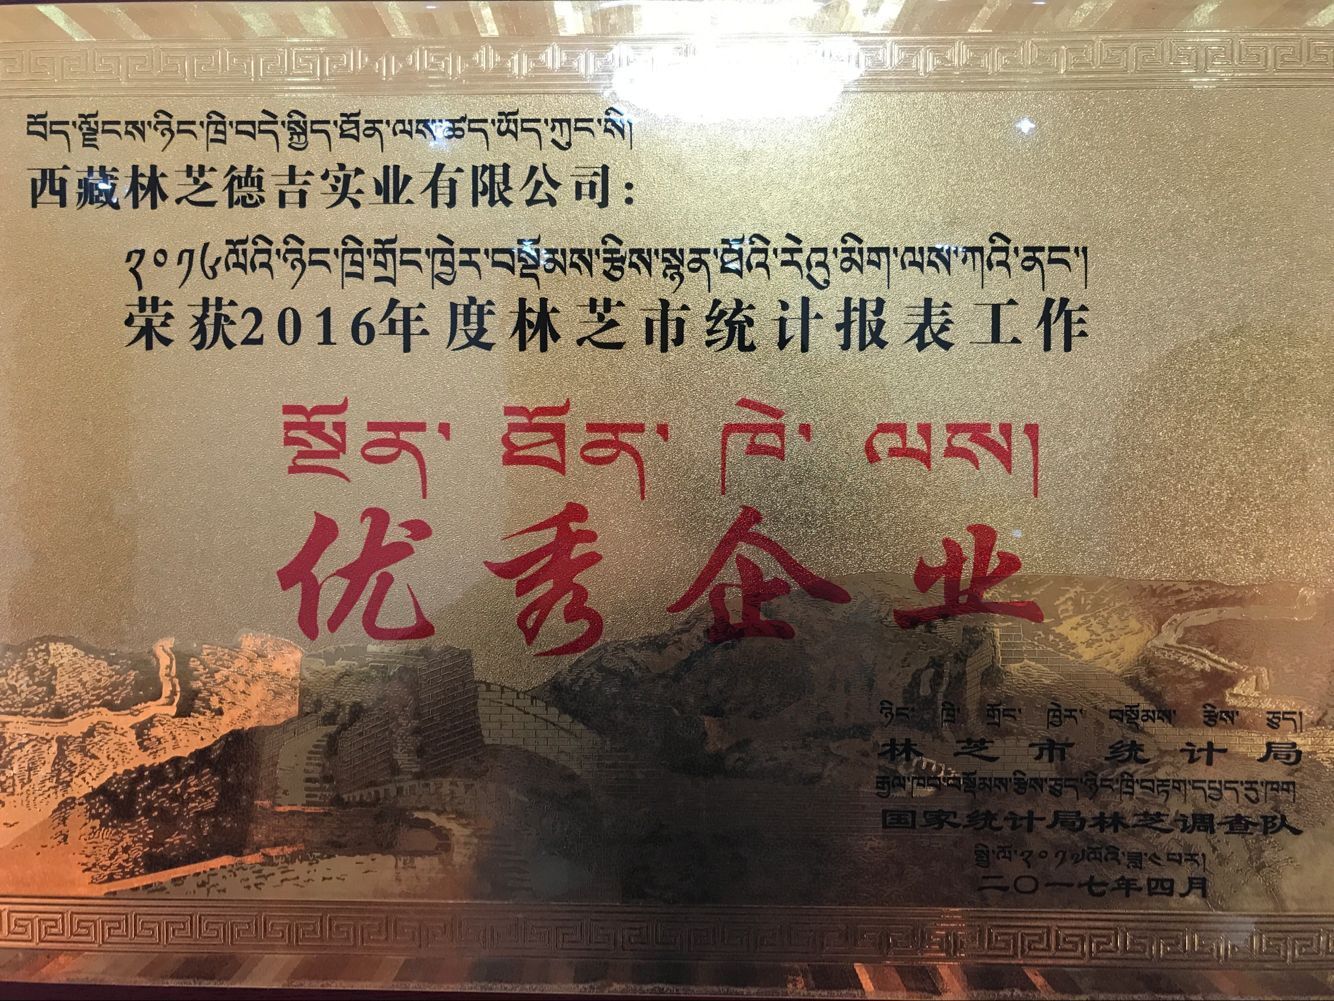 བོད་ལྗོངས་ཉིང་ཁྲི་བདེ་སྐྱིད་ཐོན་ལས་ཚད་ཡོད་ཀུང་སི།
西藏林芝德吉实业有限公司：
༢༠༡༦ལོའི་ཉིང་ཁྲི་གྲོང་ཁྱེར་བསྡོམས་རྩིས་སྙན་ཐོའི་རེའུ་མིག་ལས་ཀའི་ནང་།
荣获2016年度林芝市统计报表工作
སྔོན་ ཐོན་ ཁེ་ ལས།
优秀企业
ཉིང་ ཁྲི་ གྲོང་ ཁྱེར་ བསྡོམས་ རྩིས་ ཅུད།
林芝市统计局
རྒྱལ་ཁབ་བསྡོམས་རྩིས་ཅུད་ཉིང་ཁྲི་བརྟག་དཔྱད་རུ་ཁག
国家统计局林芝调查队
སྤྱི་ལོ་༢༠༡༧ལོའི་ཟླ་༤པར།
二〇一七年四月